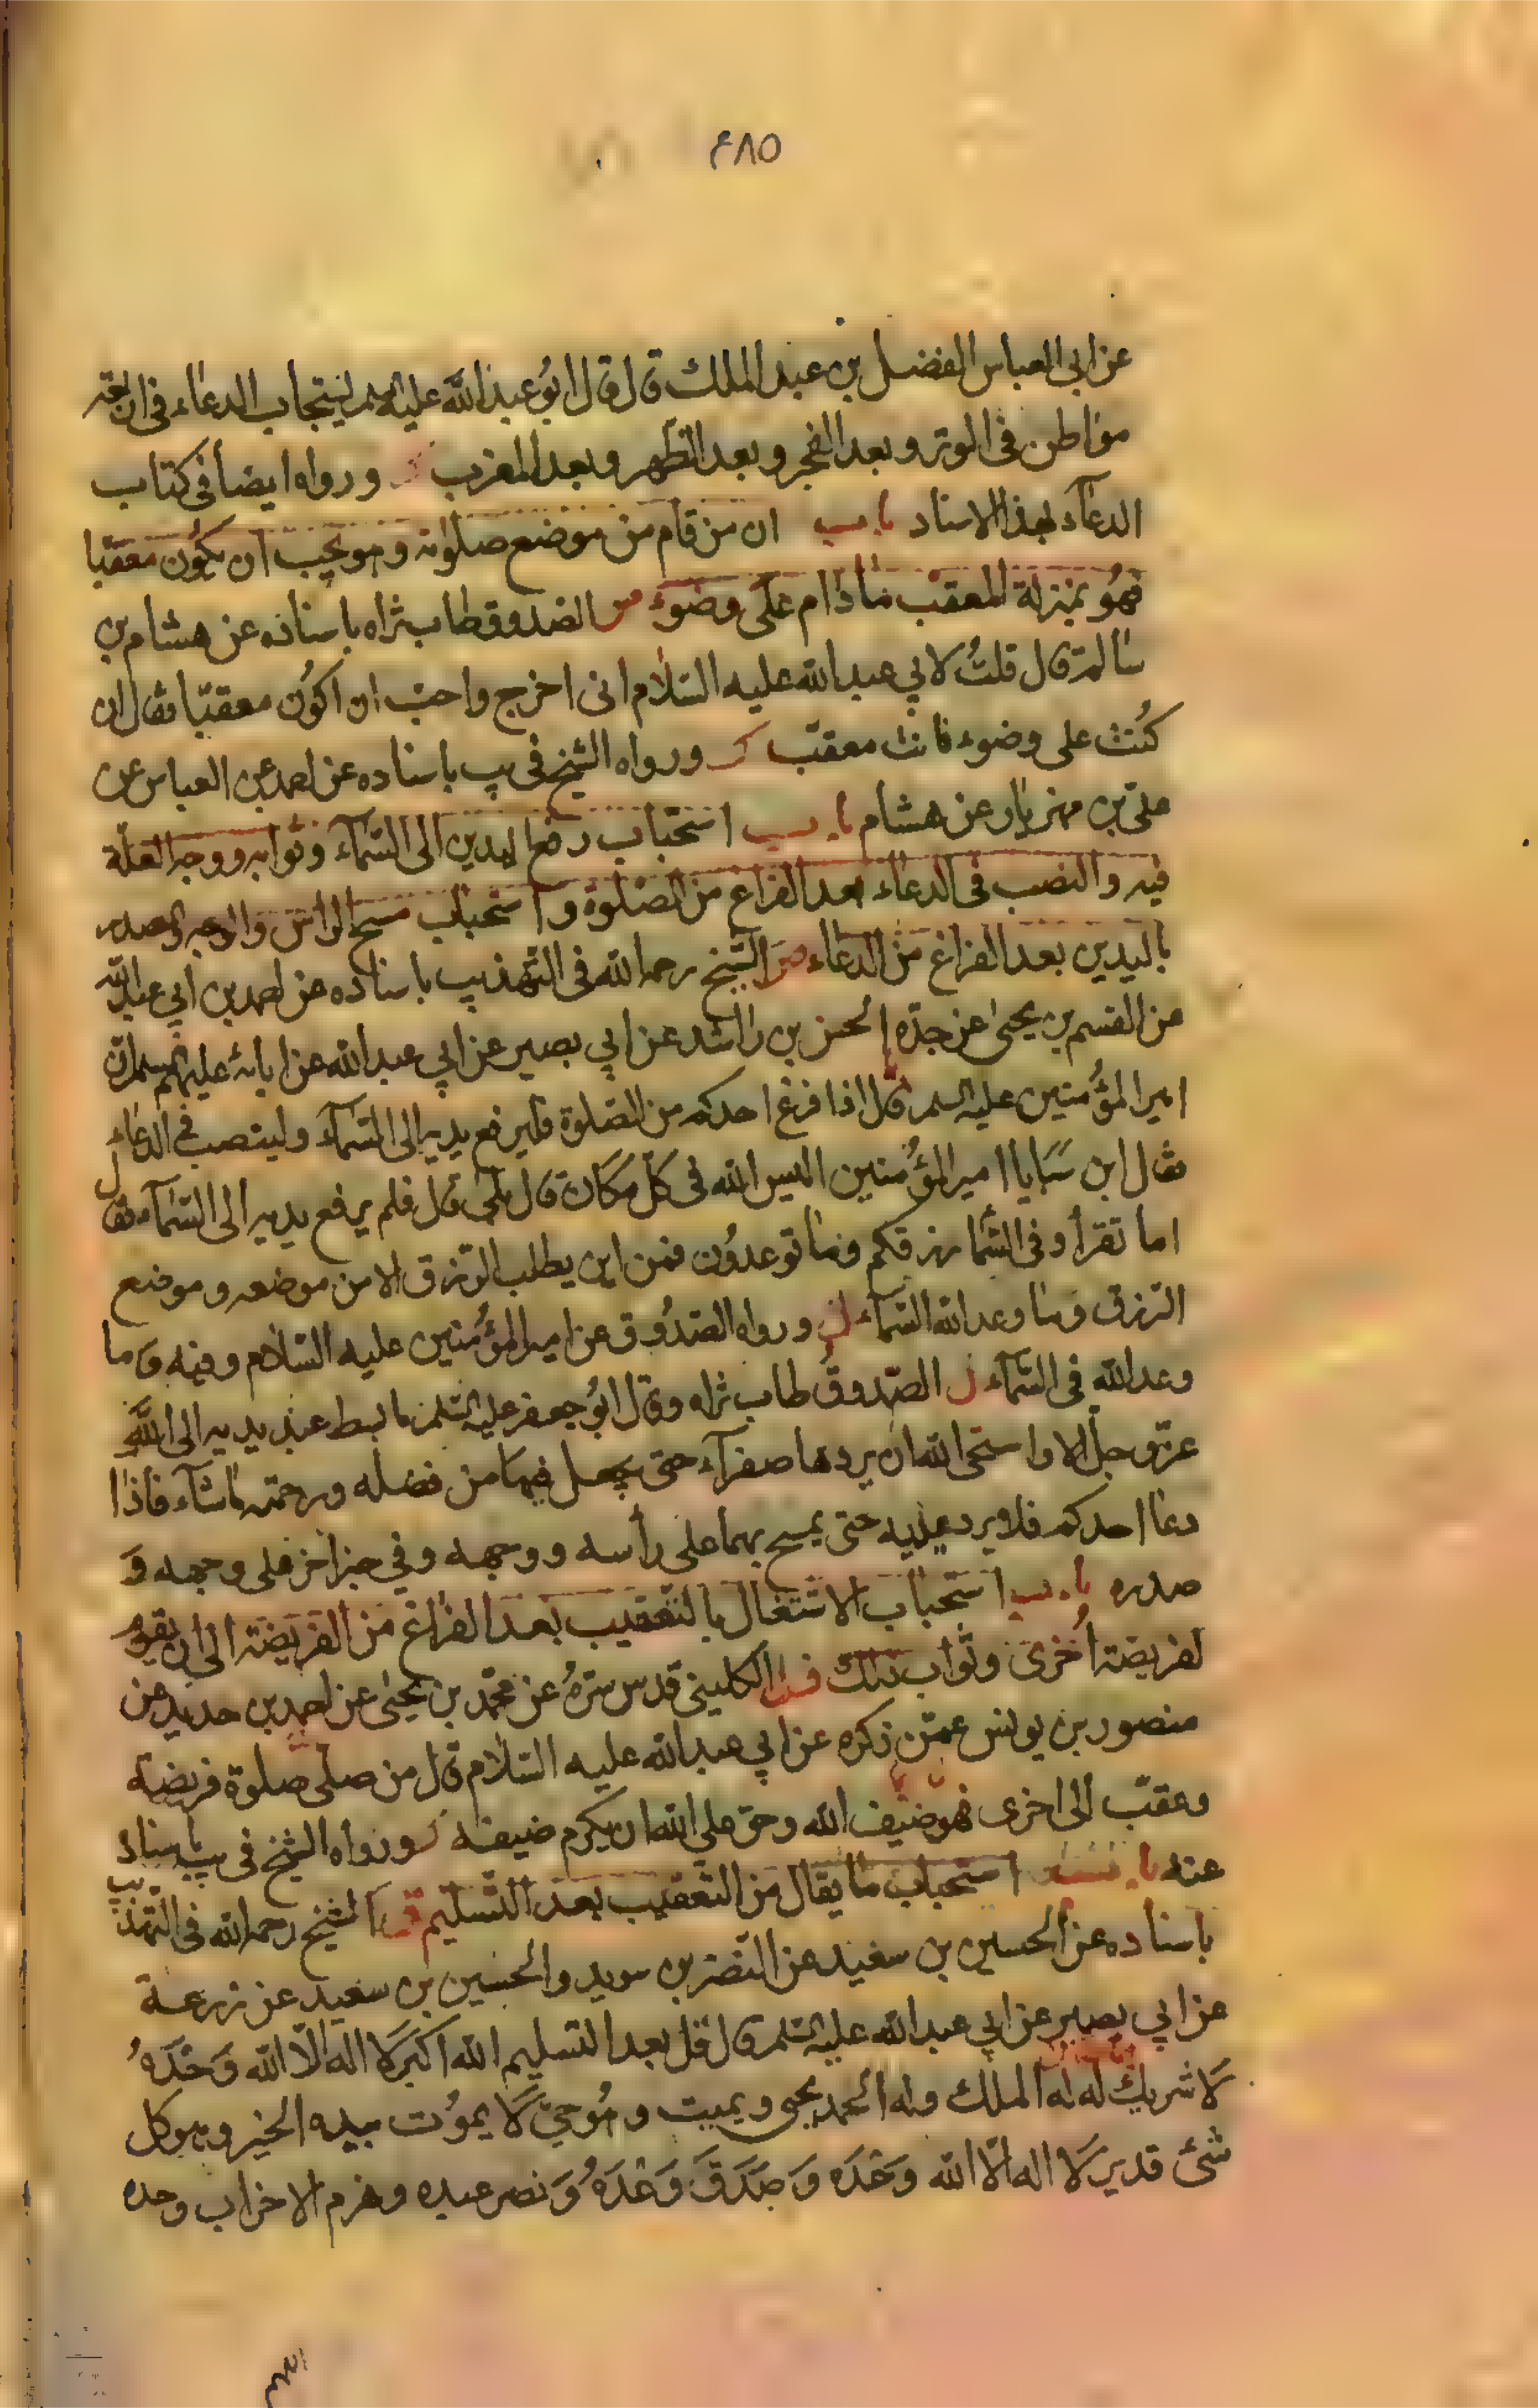 ٤٨٥
عن ابي العباس الفضل بن عبد الملك قال قال ابو عبد الله عليه السلم ليستجاب الدعاء في اربعة
مواطن في الوتر و بعد الفجر و بعد الظهر و بعد المغرب و رواه ايضا في كتاب
الدعآء بهذا الاسناد باب ان من قام من موضع صلوته و هو يحب ان يكون معقبا
فهو بمنزلة المعقب ما دام على وضوء الصدوق طاب ثراه باسناده عن هشام بن
سالم قال قلت لابي عبد الله عليه السلام انى اخرج واحب ان اكون معقبّا فقال ان
كنت على وضوء فانت معقبّ و رواه الشيخ في يب باسناده عن احمد عن العباس عن
على بن مهزيار عن هشام باب استحباب رفع اليدين الى السّمآء و ثوابه و وجه العلة
فيه و النصب في الدعاء بعد الفراغ من الصلوة و استحباب مسح الراس و الوجه و الصدر
باليدين بعد الفراغ من الدعاء الشيخ رحمه الله في التهذيب باسناده عن احمد بن ابي عبد الله
عن القسم بن يحيى عن جدّه الحسن بن راشد عن ابي بصير عن ابي عبد الله عن ابائه عليهم السلم ان
امير المؤمنين عليه السلم قال اذا فرغ احدكم من الصلوة فليرفع يديه الى السّمآء و لينصب في الدعاء
فقال ابن سبا يا امير المؤمنين اليس الله في كلّ مكان قال بلى قال فلم يرفع يديه الى السّمآء فقال
اما تقرأ و في السّما رزقكم و ما توعدون فمن اين يطلب الرّزق الا من موضعه و موضع
الرّزق و ما وعد الله السّماء و رواه الصّدوق عن امير المؤمنين عليه السّلام و فيه و ما
وعد الله في السّمآء الصّدوق طاب ثراه و قال ابو جعفر عليه السلم ما بسط عبد يديه الى الله
عزّ و جلّ الا و استحى الله ان يردها صفرآء حتى يجعل فيها من فضله و رحمته ما شآء فاذا
دعا احدكم فلا يرد يديه حتى يمسح بهما على رأسه و وجهه و في خبر اخر على وجهه و
صدره باب استحباب الاشتغال بالتعقيب بعد الفراغ من الفريضة الى ان يقوم
لفريضة اخرى و ثواب ذلك الكلينى قدس سرّه عن محمّد بن يحيى عن احمد بن حديد عن
منصور بن يونس عمّن ذكره عن ابي عبد الله عليه السّلام قال من صلى صلوة فريضة
و عقّب الى اخرى فهو ضيف الله و حق على الله ان يكرم ضيفه و رواه الشيخ في يب باسناد
عنه باب استحباب ما يقال من التعقيب بعد التسليم الشيخ رحمه الله في التهذيب
باسناده عن الحسين بن سعيد عن النضر بن سويد و الحسين بن سعيد عن زرعة
عن ابي بصير عن ابي عبد الله عليه السلم قال قل بعد التسليم الله اكبر لا اله الّا الله وحده
لا شريك له له الملك و له الحمد يحيى و يميت و هو حيّ لا يموت بيده الخير و هو كل
شئ قدير لا اله الّا الله وحده و صدق وعده و نصر عبده و هزم الاحزاب وحده